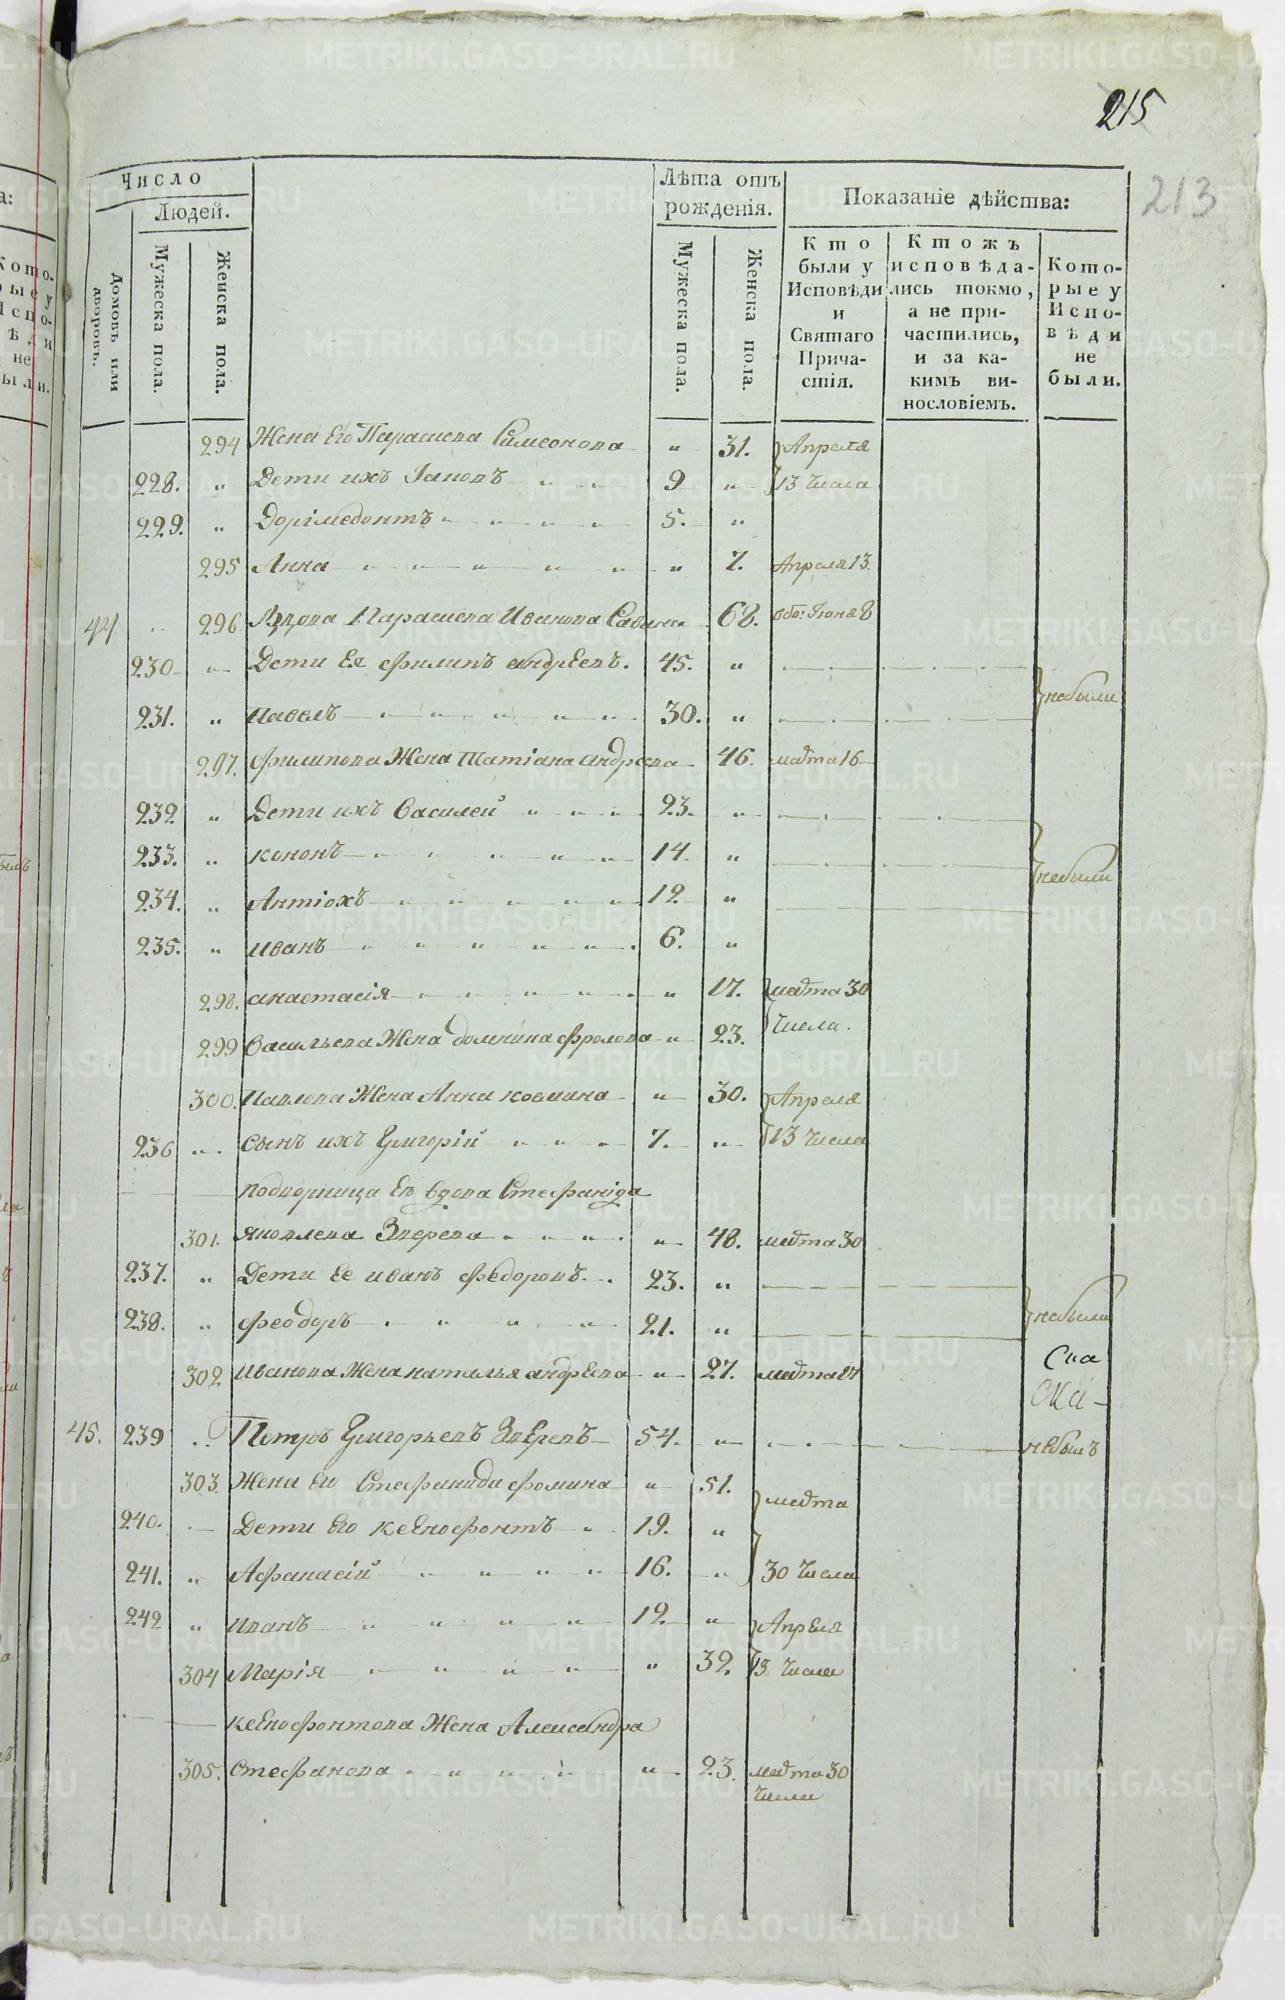 215
213
Число
Людей.
Домовъ или дворовъ.
Мужеска пола.
Женска пола.
Лѣта отъ рожденія.
Мужеска пола.
Женска пола.
Показаніе дѣйства:
Кто были у Исповѣди и Святаго Причастія.
Ктожъ исповѣдались токмо, а не причастились, и за какимъ винословіемъ.
Которые у Исповѣди не были.
294 Жена Его Парасиева Симеонова " 31. Апреля
228. " Дети ихъ Іаковъ " " 9 " 13 числа
229. " Доримедонтъ " " " " 5. "
295 Анна " " " " " " 7. Апреля 13
44 296 Вдова Парасиева Иванова 68. Июня 8
230 " Дети Ея Филипъ Андреевъ. 45. "
небыли
231. " Павелъ " " " " 30. "
297. Филипова Жена Татіана Андреева 46. марта 16
232 " Дети ихъ Василей " " " 23. "
233. " кононъ " " " " 14. "
небыли
234. " Антіохъ " " " " " 12 "
235. " иванъ " " " " " 6. "
298. анастасія " " " " " 17. марта 30
299 Васильева Жена Домнина Фролова " 23. числа.
300. Павлова Жена Анна козмина " 30. Апреля
236 " сынъ ихъ Григорій " " " 7. " 13 числа
подворница Ев вдова Стефанида
301. яковлева Зверева " " " " 48. марта 30
237. " Дети Ее иванъ Федоровъ. 23. "
238. " Феодоръ " " " 21. "
небыли
302 Иванова Жена наталья андреева " 27. марта 17
45. 239 Петръ Григорьевъ Зверевъ 54. " небылъ
303. Жена Его Стефанида Фомина " 51.
марта
240. Дети Его ксенофонтъ " 19. "
241. " Афанасій " " " " 16. " 30 числа
242 " иванъ " " " " 12. " Апреля
304 Марія " " " " " 32. 13 числа
ксенофонтова Жена Александра
305. Стефанова " " " " " 23. марта 30
числа
METRIKI.GASO-URAL.RU